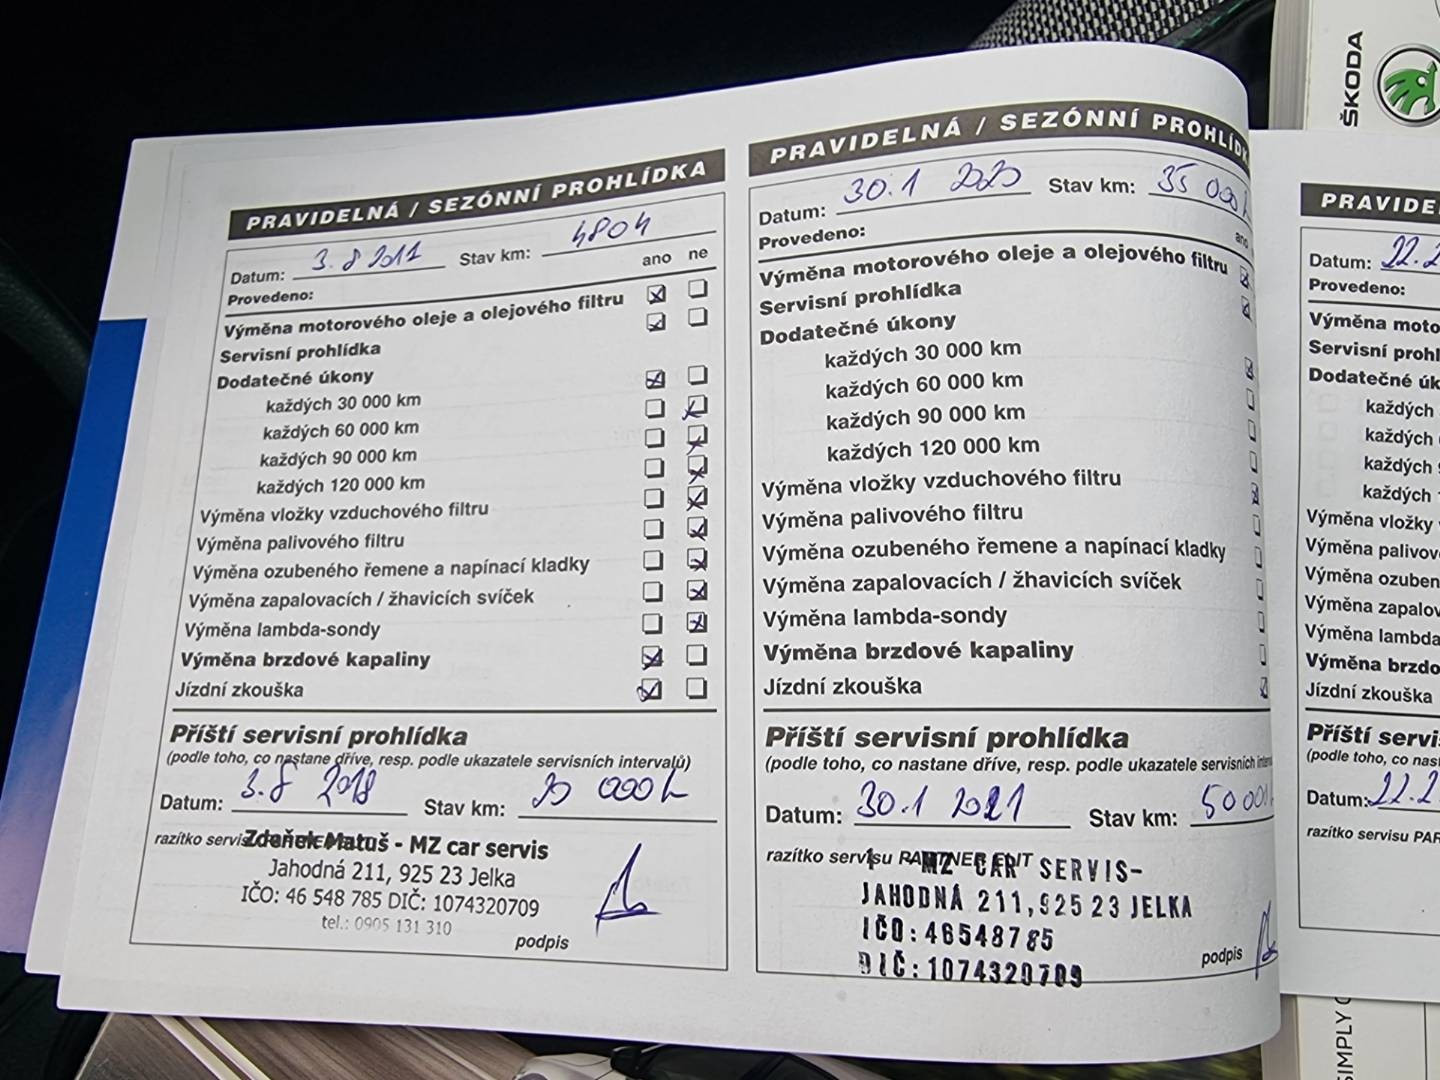 PRAVIDELNÁ / SEZÓNNÍ PROHLÍDKA
Datum: 3.8 2017 Stav km: 4804
Provedeno: ano ne
Výměna motorového oleje a olejového filtru
Servisní prohlídka
Dodatečné úkony
každých 30 000 km
každých 60 000 km
každých 90 000 km
každých 120 000 km
Výměna vložky vzduchového filtru
Výměna palivového filtru
Výměna ozubeného řemene a napínací kladky
Výměna zapalovacích / žhavicích svíček
Výměna lambda-sondy
Výměna brzdové kapaliny
Jízdní zkouška
Příští servisní prohlídka
(podle toho, co nastane dříve, resp. podle ukazatele servisních intervalů)
Datum: 3.8 2018 Stav km: 20 000
razítko
Zdeněk Matuš - MZ car servis
Jahodná 211, 925 23 Jelka
IČO: 46 548 785 DIČ: 1074320709
tel.: 0905 131 310
podpis
PRAVIDELNÁ / SEZÓNNÍ PROHLÍDK
Datum: 30.1 2020 Stav km: 35 000
Provedeno: ano
Výměna motorového oleje a olejového filtru
Servisní prohlídka
Dodatečné úkony
každých 30 000 km
každých 60 000 km
každých 90 000 km
každých 120 000 km
Výměna vložky vzduchového filtru
Výměna palivového filtru
Výměna ozubeného řemene a napínací kladky
Výměna zapalovacích / žhavicích svíček
Výměna lambda-sondy
Výměna brzdové kapaliny
Jízdní zkouška
Příští servisní prohlídka
(podle toho, co nastane dříve, resp. podle ukazatele servisních
Datum: 30.1 2021 Stav km: 50 000
razítko servisu PARTNER
MZ CAR SERVIS-
JAHODNÁ 211,925 23 JELKA
IČO:46548785
DIČ:1074320709
podpis
PRAVIDE
Datum: 22.2
Provedeno:
Výměna moto
Servisní prohl
Dodatečné úk
každých
každých
každých
každých
Výměna vložky
Výměna palivov
Výměna ozuben
Výměna zapalov
Výměna lambda
Výměna brzdo
Jízdní zkouška
Příští servi
(podle toho, co nast
Datum: 22.2
razítko servisu PAR
ŠKODA
SIMPLY C